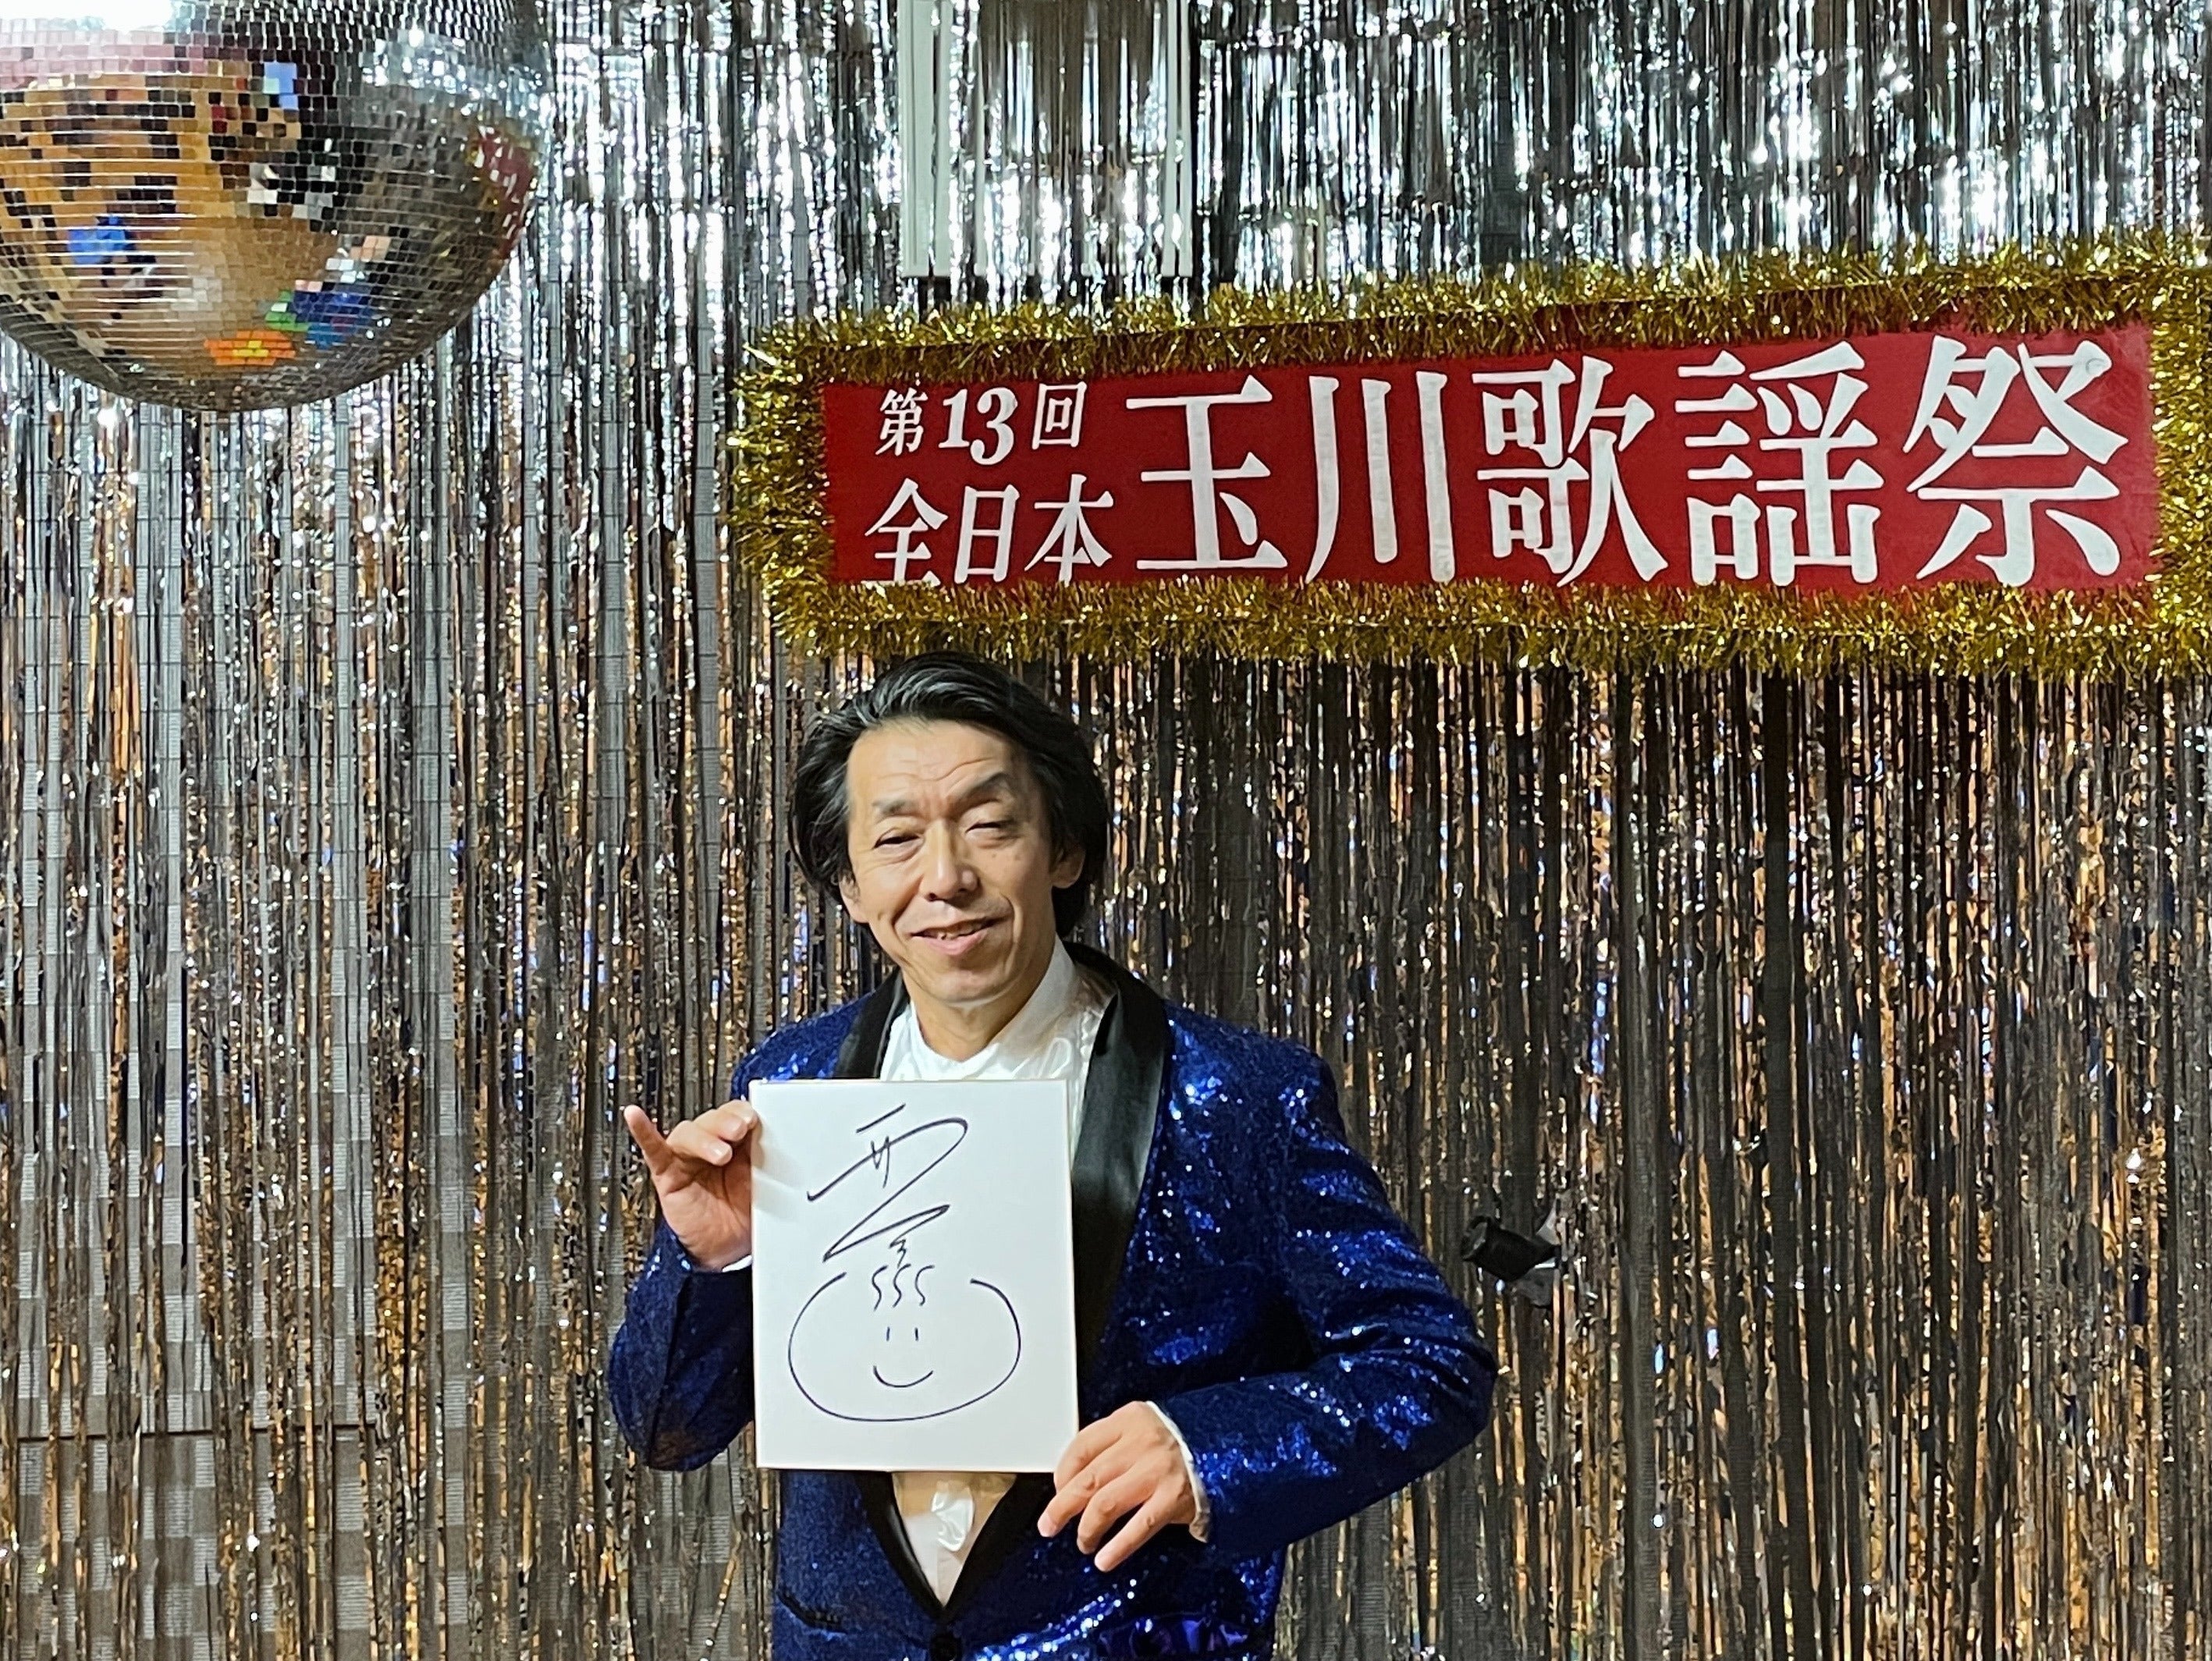 第13回
全日本 玉川歌謡祭